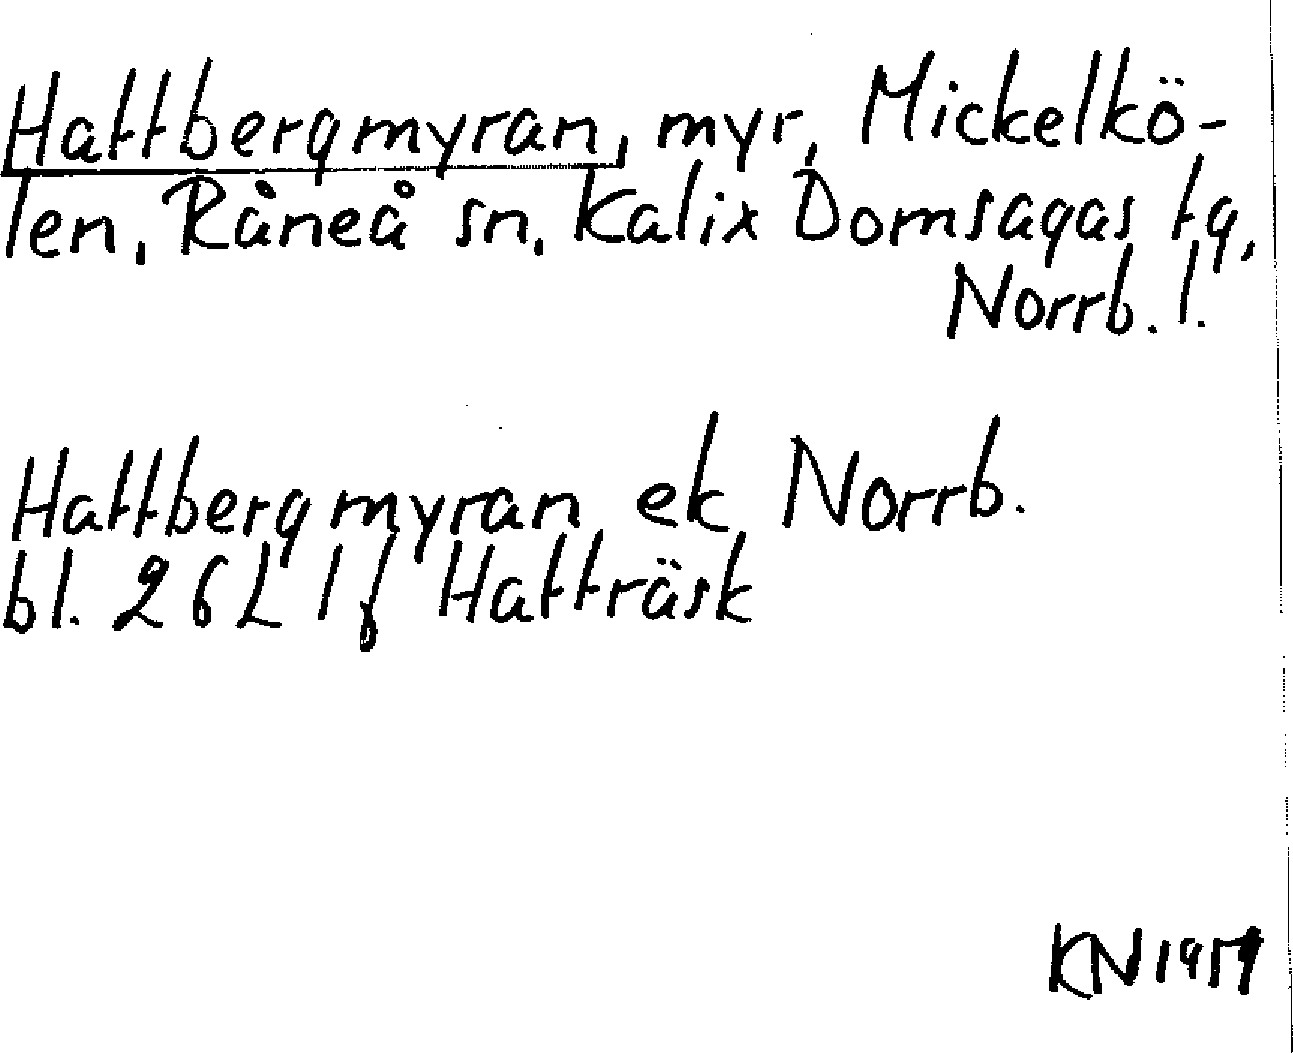 Hattbergmyran, myr, Mickelkö-
len, Råneå sn, Kalix Domsagas tg,
Norrb. l.
Hattbergmyran ek Norrb.
bl. 26L 1f Hatträsk
KN